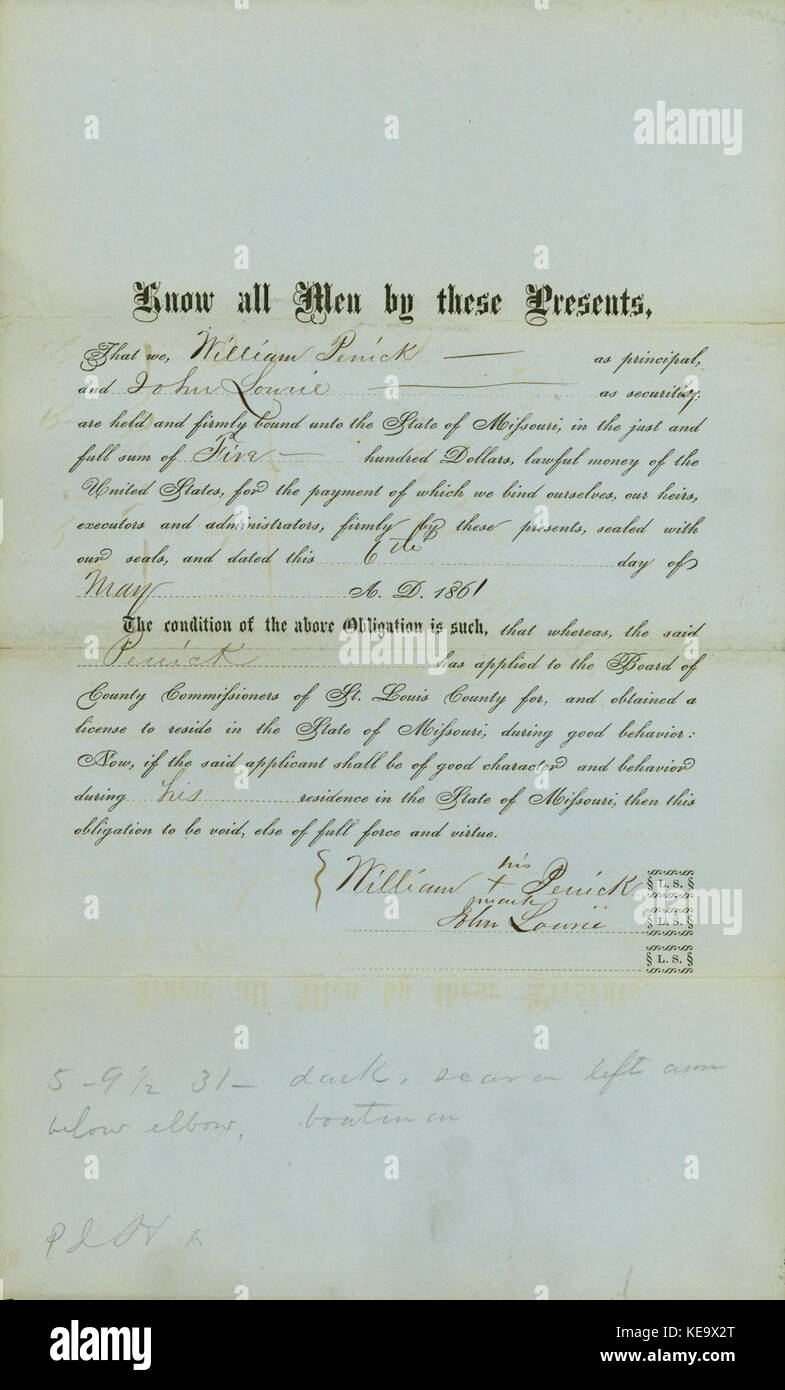 Know all Men by these Presents,
That we, William Penick — as principal,
and John Lowrie — as security
are held and firmly bound unto the State of Missouri, in the just and
full sum of Five — hundred Dollars, lawful money of the
United States, for the payment of which we bind ourselves, our heirs,
executors and administrators, firmly by these presents, sealed with
our seals, and dated this 6th day of
May A. D. 1861
The condition of the above Obligation is such, that whereas, the said
Penick has applied to the Board of
County Commissioners of St. Louis County for, and obtained a
license to reside in the State of Missouri, during good behavior:
Now, if the said applicant shall be of good character and behavior
during his residence in the State of Missouri, then this
obligation to be void, else of full force and virtue.
his
William + Penick § L. S. §
mark
John Lowrie § L. S. §
§ L. S. §
5-9½ 31- dark, scar on left arm
below elbow, boatman
alamy
Image ID: KE9X2T
www.alamy.com